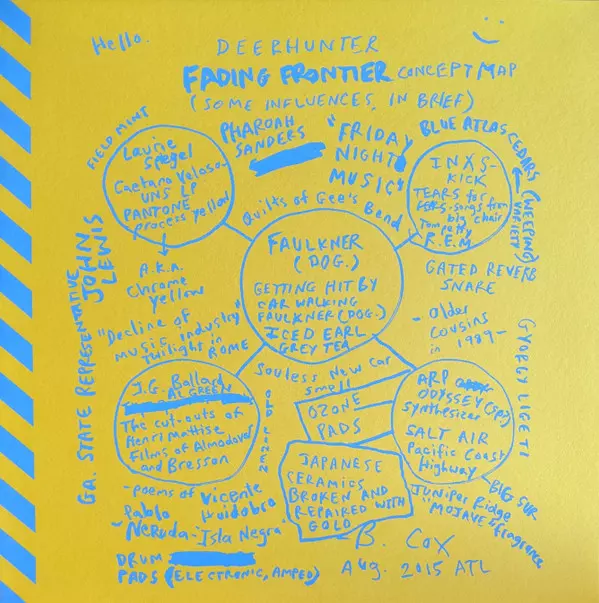 Hello.
DEERHUNTER
FADING FRONTIER CONCEPT MAP
(SOME INFLUENCES, IN BRIEF)
FIELD MINT
Laurie
Spegel
Caetano Veloso-
UNS LP
PANTONE
process yellow
PHAROAH
SANDERS
"FRIDAY
NIGHT
MUSIC"
BLUE ATLAS CEDARS (WEEPING)
VARIETY
INXS-
KICK
TEARS for
songs from
big chair
Tom petty
R.E.M
Quilts of Gee's Bend
FAULKNER
(DOG.)
GETTING HIT BY
CAR WALKING
FAULKNER (DOG.)
ICED EARL
GREY TEA
GATED REVERB
SNARE
- older
cousins
in 1989-
GYORGY LIGETI
GA. STATE REPRESENTATIVE
JOHN
LEWIS
A.K.A.
Chrome
yellow
"Decline of
music industry"
Twilight in ROME
J.G. Ballard
AL GREEN
The cut-outs of
Henri Mattise
Films of Almodovar
and Bresson
Souless New Car
Smell
OZONE
PADS
OLD
JAPANESE
CERAMICS
BROKEN AND
REPAIRED WITH
GOLD
ARP
ODYSSEY (sp?)
Synthesizer
SALT AIR
Pacific Coast
Highway
BIG SUR
JUNIPER Ridge
"MOJAVE" Fragrance
-poems of Vicente
Huidobro
Pablo
-Neruda-"Isla Negra"
DRUM
PADS (ELECTRONIC, AMPED)
B. Cox
Aug. 2015 ATL